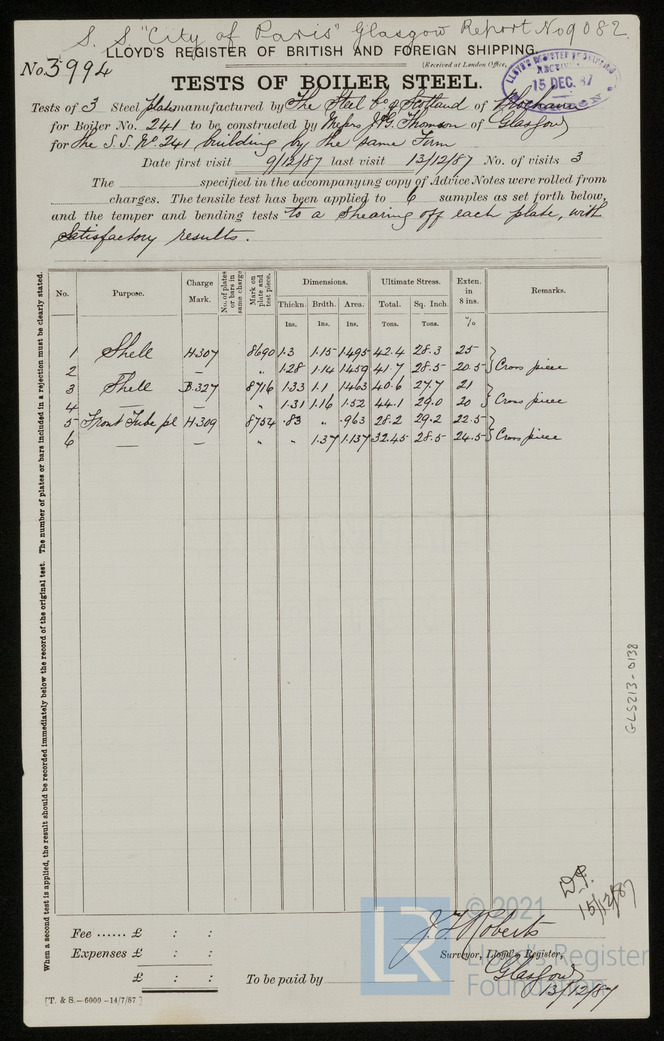 S. S "City of Paris" Glasgow Report No 9082.
LLOYD'S REGISTER OF BRITISH AND FOREIGN SHIPPING.
No. 3994
(Received at London Office,
LLOYD'S REGISTER
15 DEC. 87
TESTS OF BOILER STEEL.
Tests of 3 Steel plates manufactured by The Steel Co of Scotland of
for Boiler No. 241 to be constructed by Messrs J & G. Thomson of Glasgow
for the S.S. No 241 building by the same Firm
Date first visit 9/12/87 last visit 13/12/87 No. of visits 3
The specified in the accompanying copy of Advice Notes were rolled from
charges. The tensile test has been applied to 6 samples as set forth below,
and the temper and bending tests to a Shearing off each plate, with
Satisfactory results.
No. Purpose. Charge Mark. No. of plates or bars in same charge Mark on plate and test piece. Dimensions. Ultimate Stress. Exten. in 8 ins. Remarks.
Thickn. Brdth. Area. Total. Sq. Inch.
Ins. Ins. Ins. Tons. Tons. %
1 Shell H.307 8690 1.3 1.15 1.495 42.4 28.3 25
2 — " 1.28 1.14 1.459 41.7 28.5 20.5 Cross piece
3 Shell B.327 8716 1.33 1.1 1.463 40.6 27.7 21
4 — — " 1.31 1.16 1.52 44.1 29.0 20 Cross piece
5 Front Tube pl H.309 8754 .83 " .963 28.2 29.2 22.5
6 — — " " 1.37 1.137 32.45 28.5 24.5 Cross piece
When a second test is applied, the result should be recorded immediately below the record of the original test. The number of plates or bars included in a rejection must be clearly stated.
GLS213-0138
15/12/87
Fee ...... £ : :
Expenses £ : :
£ : :
To be paid by
J. F. Roberts
Surveyor, Lloyd's Register,
Glasgow
13/12/87
[T. & S.—6000—14/7/87]
LR
© 2021
Lloyd's Register
Foundation